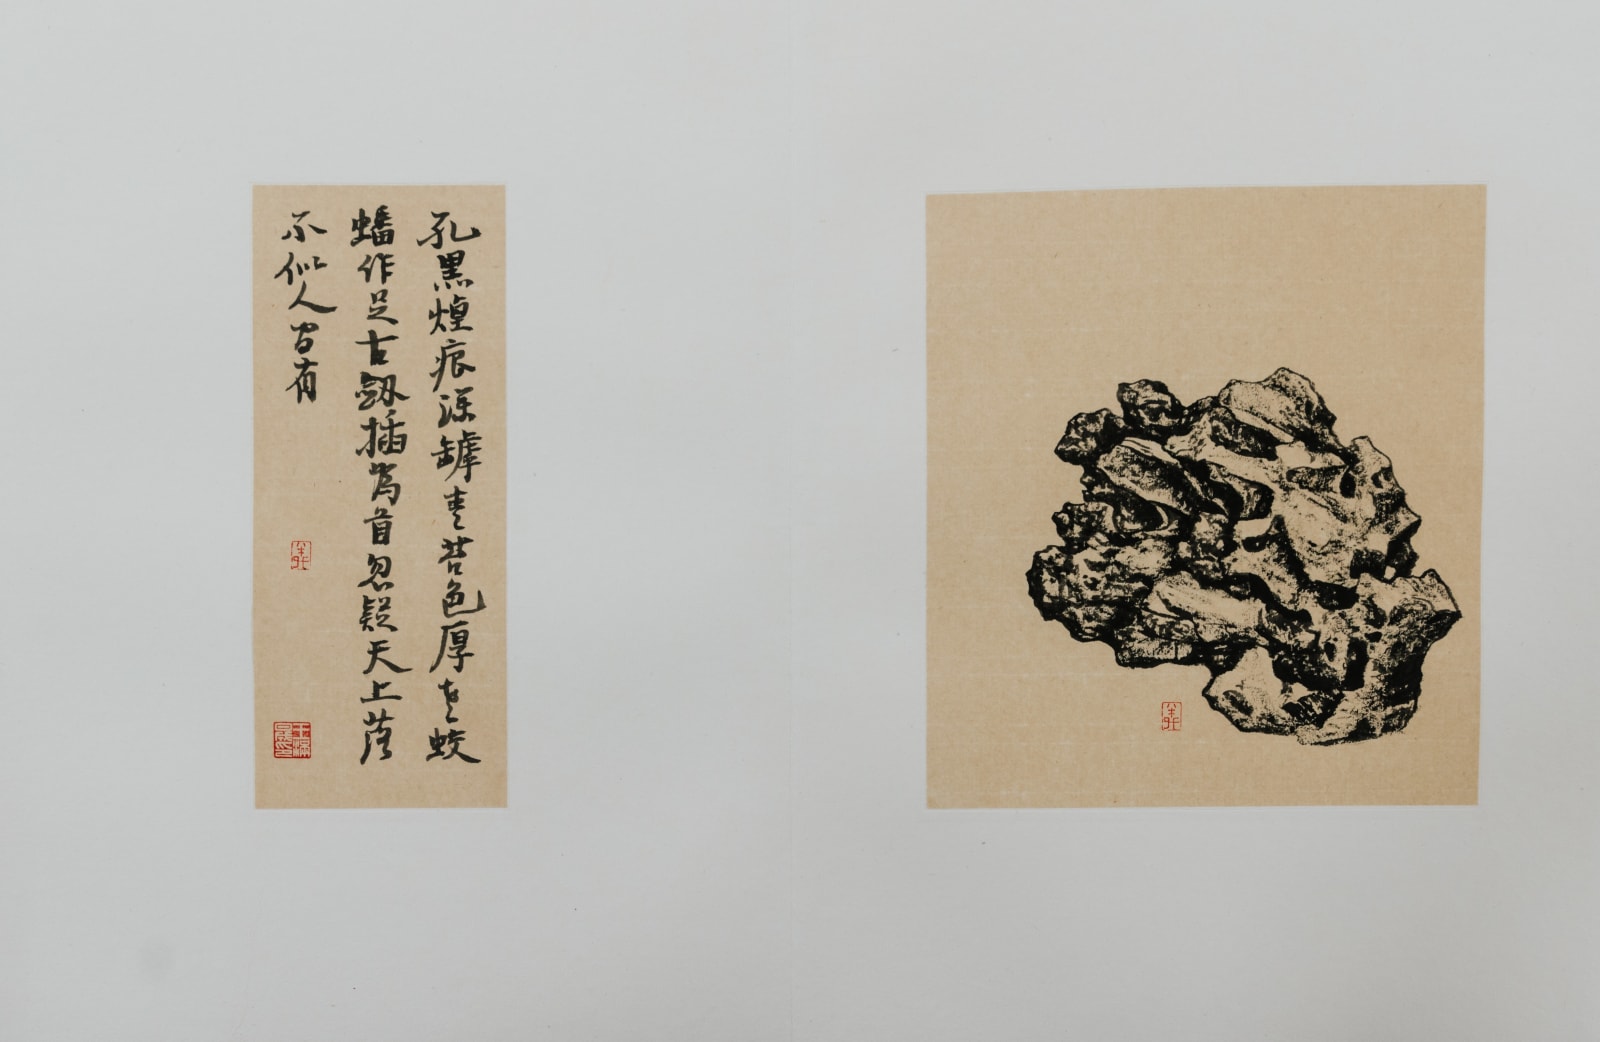 孔黑煙痕深罅青苔色厚老蛟
蟠作足古劔插為首忽疑天上落
不似人間有